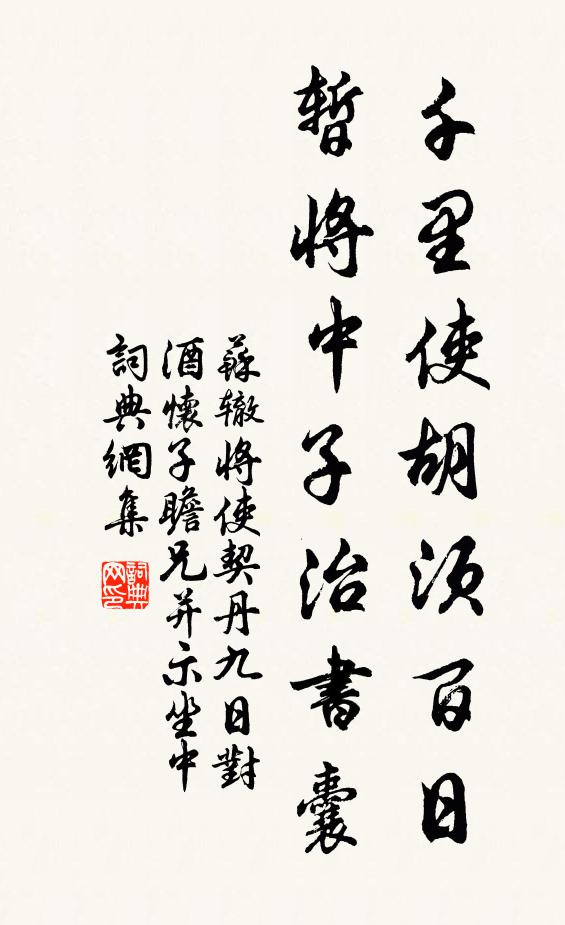 千里使胡須百日
暫將中子治書囊
蘇轍將使契丹九日對
酒懷子瞻兄并示坐中
詞典網集
詞典網印